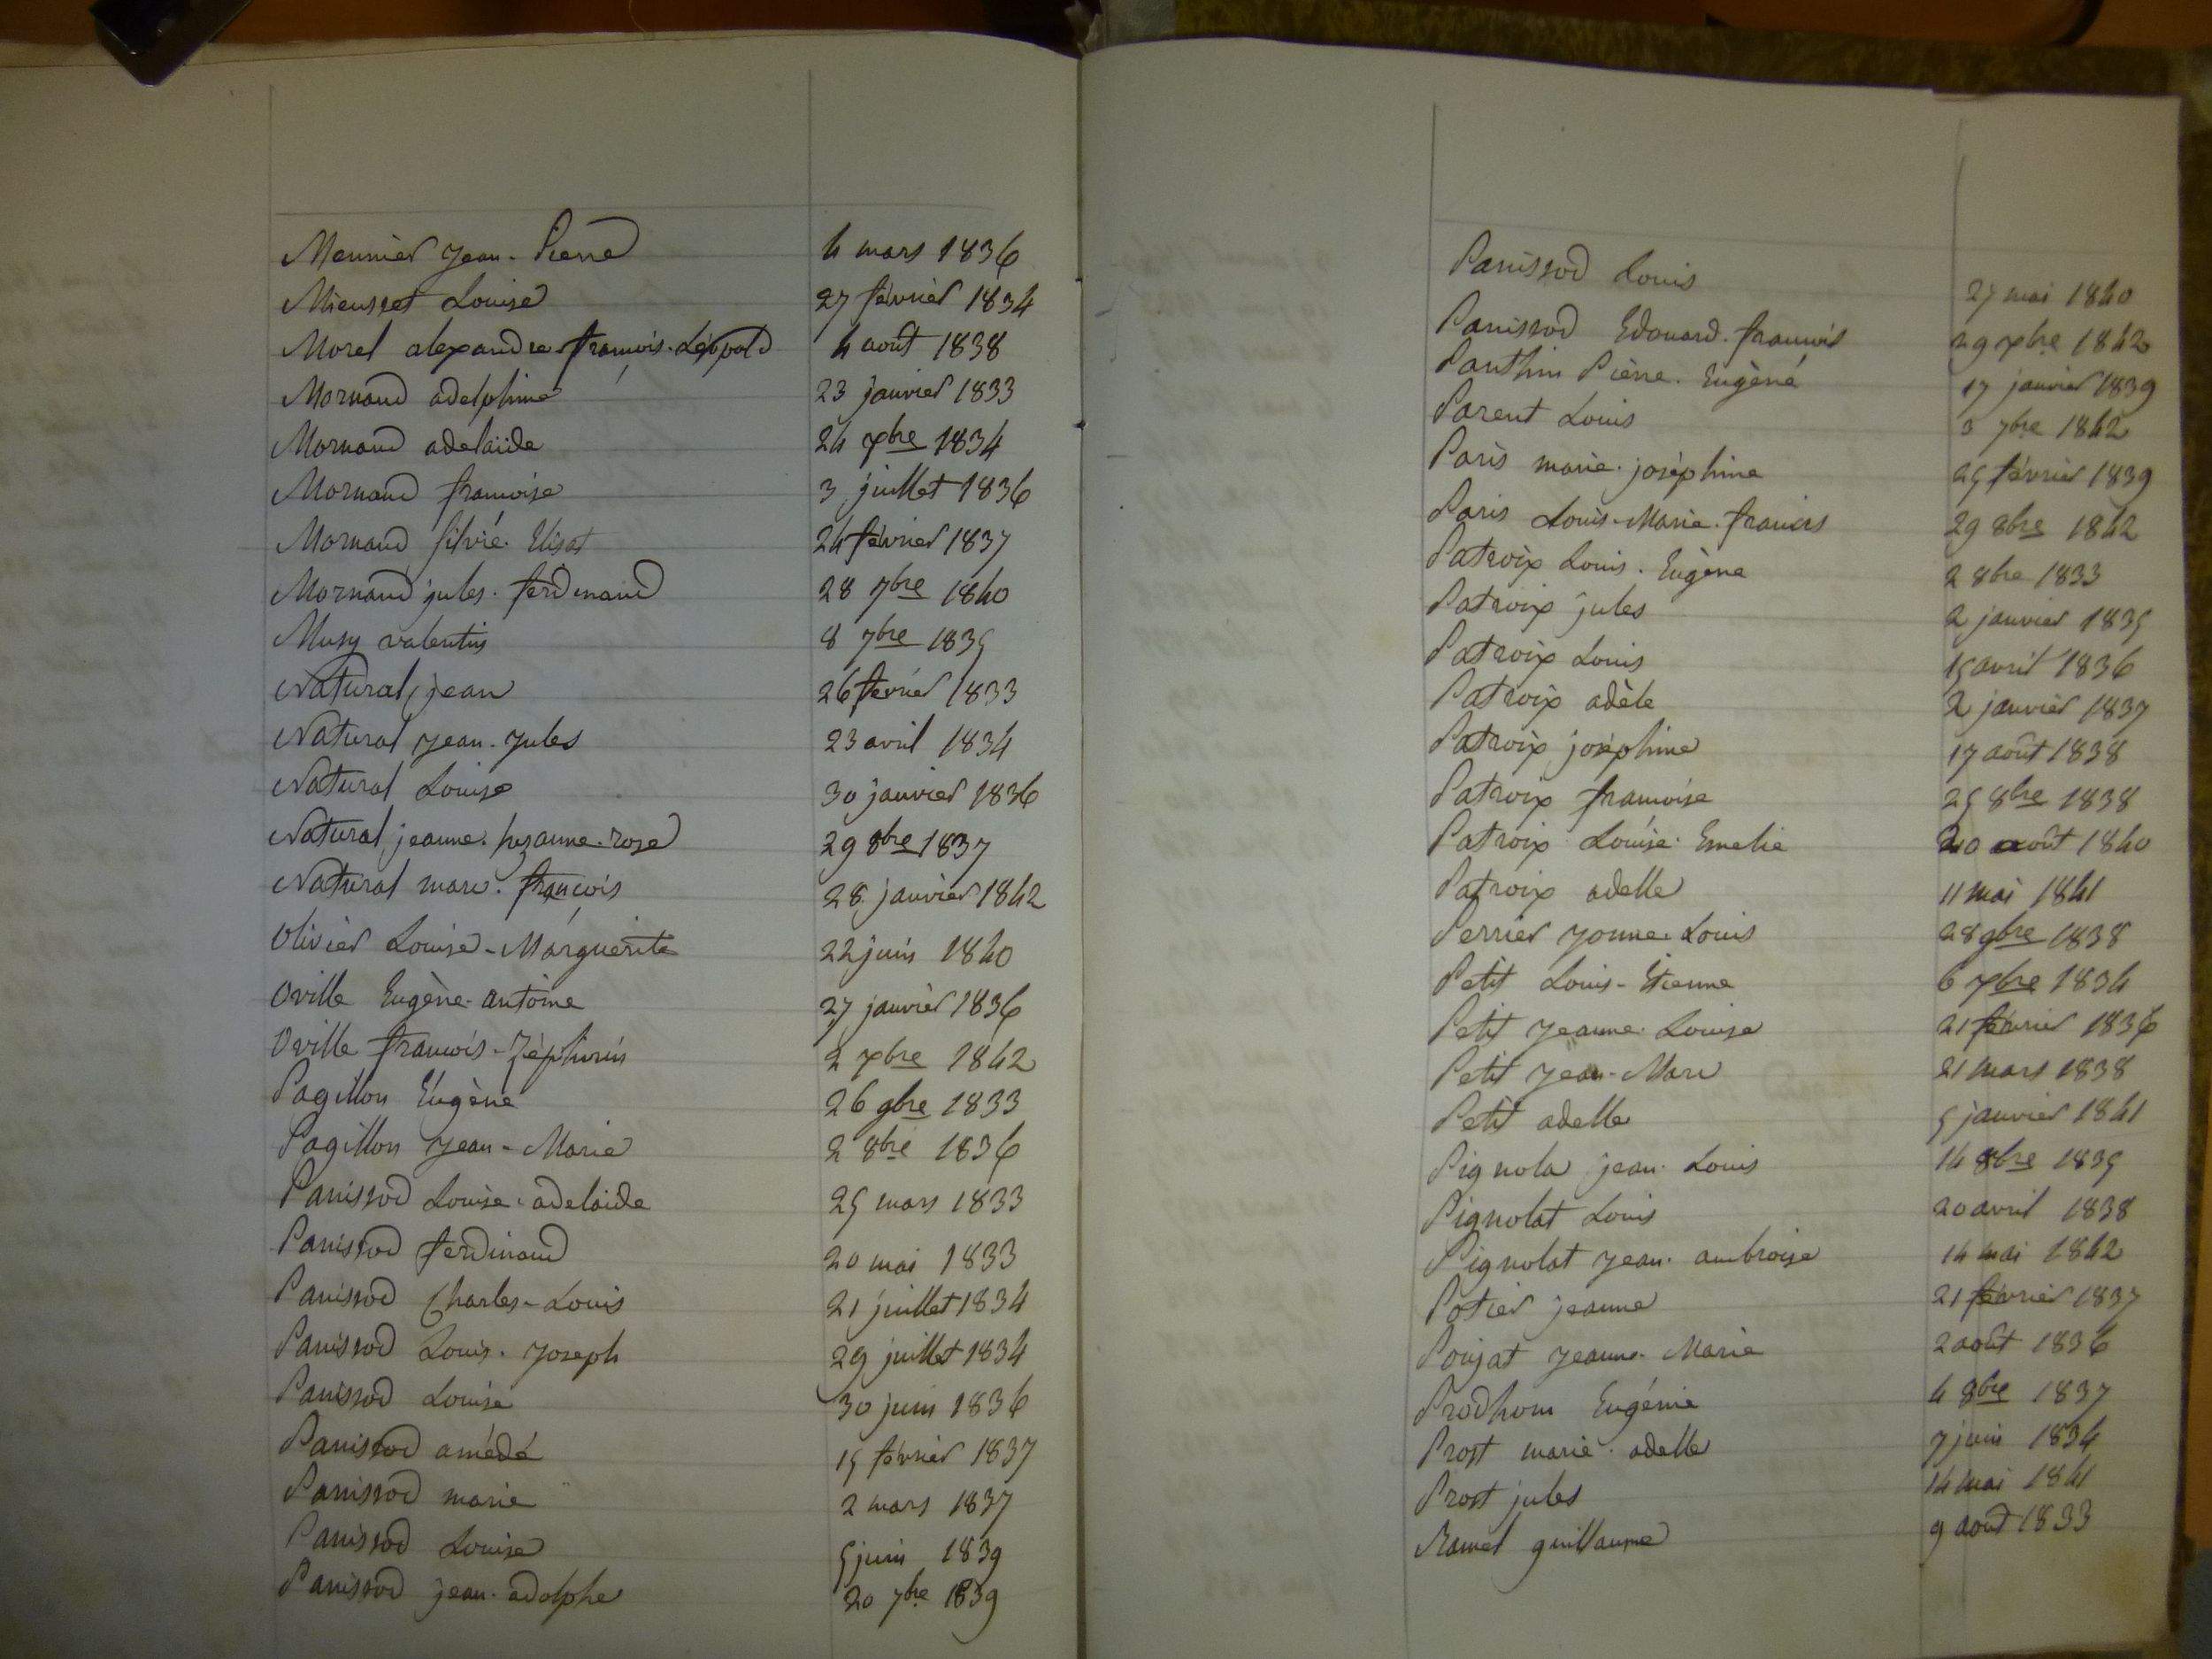 Meunier Jean-Pierre 4 mars 1836
Mieusset Louise 27 février 1834
Morel alexandre-françois-Léopold 4 août 1838
Mornand adelphine 23 janvier 1833
Mornand adelaïde 24 xbre 1834
Mornand françoise 3 juillet 1836
Mornand silvie. Elisat 24 février 1837
Mornand jules. ferdinand 28 7bre 1840
Musy valentin 8 7bre 1835
Natural jean 26 février 1833
Natural Jean-Jules 23 avril 1834
Natural Louise 30 janvier 1836
Natural jeanne. suzanne. rose 29 8bre 1837
Natural marc. françois 28 janvier 1842
Olivier Louise-Marguerite 22 juin 1840
Oville Eugène-antoine 27 janvier 1836
Oville françois-Zéphirin 2 xbre 1842
Pagillon Eugène 26 9bre 1833
Pagillon Jean-Marie 2 8bre 1836
Panissod Louise-adelaide 25 mars 1833
Panissod ferdinand 20 mai 1833
Panissod Charles-Louis 21 juillet 1834
Panissod Louis. Joseph 29 juillet 1834
Panissod Louise 30 juin 1836
Panissod amédé 15 février 1837
Panissod marie 2 mars 1837
Panissod Louise 5 juin 1839
Panissod jean-adolphe 20 7bre 1839
Panissod Louis 27 mai 1840
Panissod Edouard. françois 29 xbre 1842
Panthin Pierre. Eugène 17 janvier 1839
Parent Louis 3 7bre 1842
Paris marie. joséphine 25 février 1839
Paris Louis-Marie. francis 29 8bre 1842
Patroix Louis. Eugène 2 8bre 1833
Patroix jules 2 janvier 1835
Patroix Louis 15 avril 1836
Patroix adèle 2 janvier 1837
Patroix joséphine 17 août 1838
Patroix françoise 25 8bre 1838
Patroix Louise. Emelie 20 août 1840
Patroix adelle 11 mai 1841
Perrier Louis 28 9bre 1838
Petit Louis-Etienne 6 7bre 1834
Petit Jeanne. Louise 21 février 1836
Petit Jean-Marc 21 mars 1838
Petit adelle 5 janvier 1841
Pignola jean. Louis 14 8bre 1835
Pignolat Louis 20 avril 1838
Pignolat Jean. ambroise 14 mai 1842
Potier jeanne 21 février 1837
Poujat Jeanne. Marie 2 août 1836
Prodhom Eugénie 4 8bre 1837
Prost marie. adelle 7 juin 1834
Prost jules 14 mai 1841
Ramel guillaume 9 août 1833